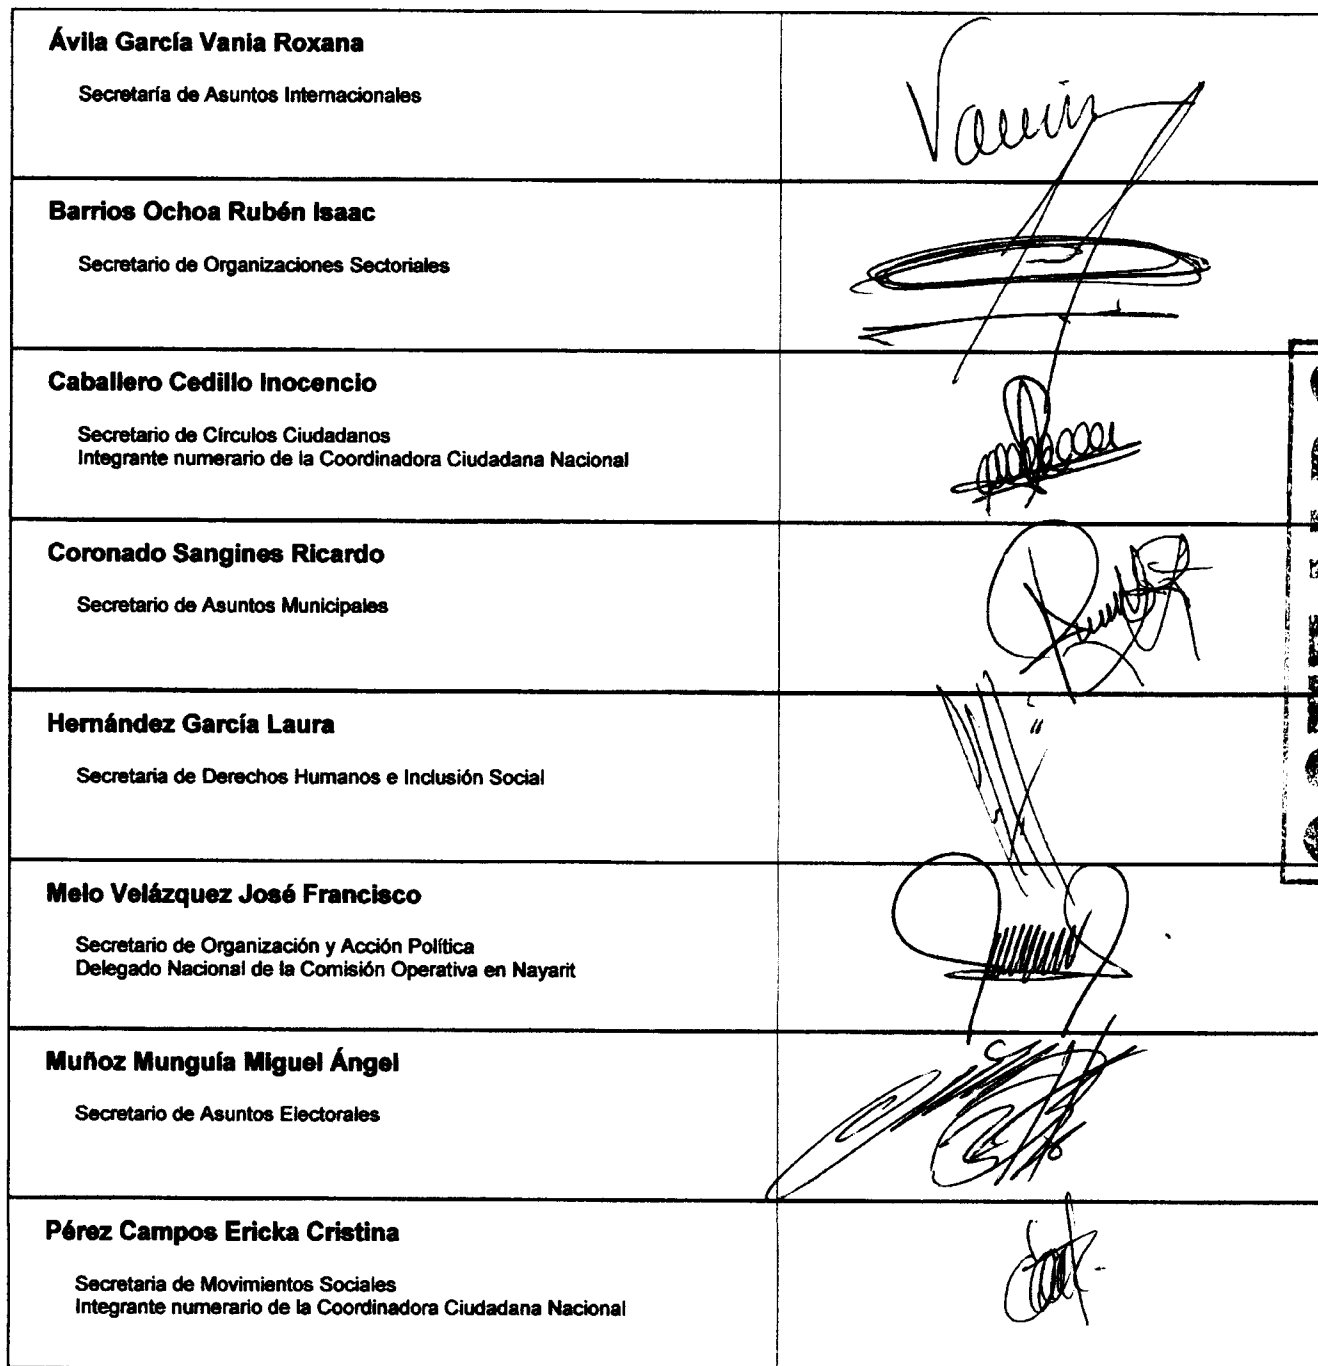 Ávila García Vania Roxana
Secretaría de Asuntos Internacionales
Vania
Barrios Ochoa Rubén Isaac
Secretario de Organizaciones Sectoriales
Caballero Cedillo Inocencio
Secretario de Círculos Ciudadanos
Integrante numerario de la Coordinadora Ciudadana Nacional
Coronado Sangines Ricardo
Secretario de Asuntos Municipales
Hernández García Laura
Secretaria de Derechos Humanos e Inclusión Social
Melo Velázquez José Francisco
Secretario de Organización y Acción Política
Delegado Nacional de la Comisión Operativa en Nayarit
Muñoz Munguía Miguel Ángel
Secretario de Asuntos Electorales
Pérez Campos Ericka Cristina
Secretaria de Movimientos Sociales
Integrante numerario de la Coordinadora Ciudadana Nacional